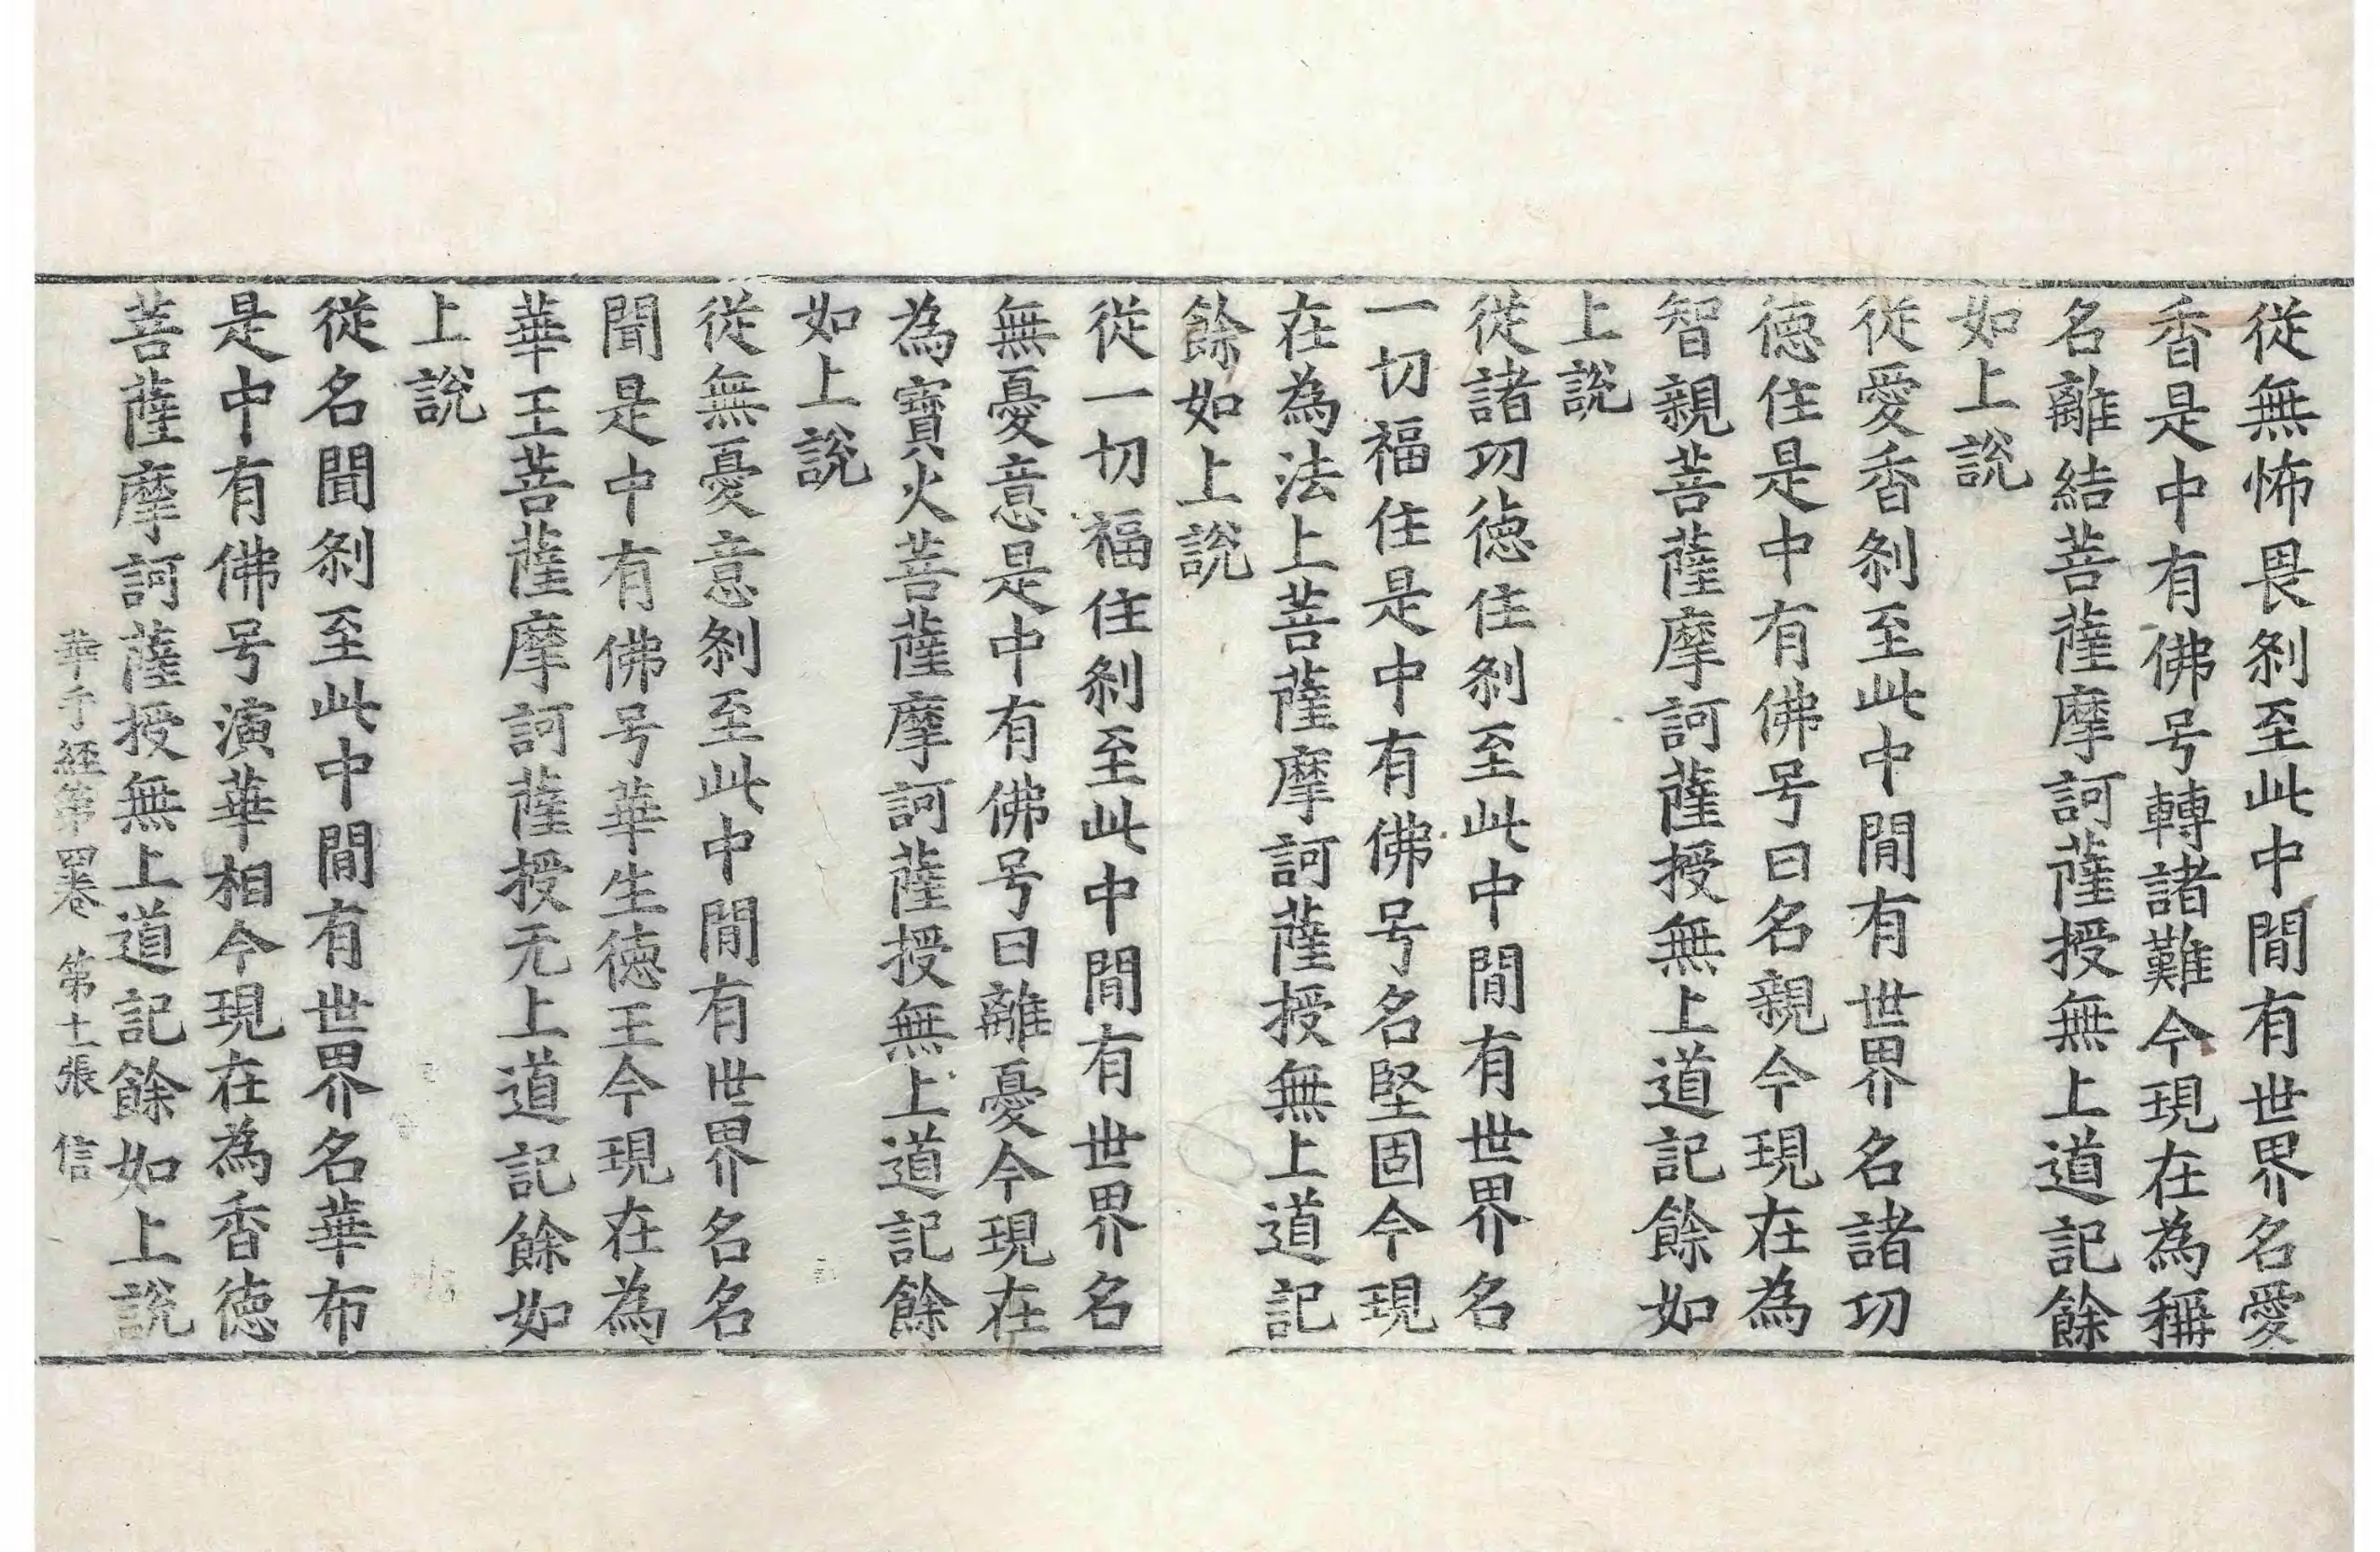 從無怖畏刹至此中間有世界名愛
香是中有佛号轉諸難今現在為稱
名離結菩薩摩訶薩授無上道記餘
如上說
從愛香刹至此中間有世界名諸功
德住是中有佛号曰名親今現在為
智親菩薩摩訶薩授無上道記餘如
上說
從諸功德住刹至此中間有世界名
一切福住是中有佛号名堅固今現
在為法上菩薩摩訶薩授無上道記
餘如上說
從一切福住刹至此中間有世界名
無憂意是中有佛号曰離憂今現在
為寶火菩薩摩訶薩授無上道記餘
如上說
從無憂意刹至此中間有世界名名
聞是中有佛号華生德王今現在為
華王菩薩摩訶薩授无上道記餘如
上說
從名聞刹至此中間有世界名華布
是中有佛号演華相今現在為香德
菩薩摩訶薩授無上道記餘如上說
華手經第四卷 第十一張 信